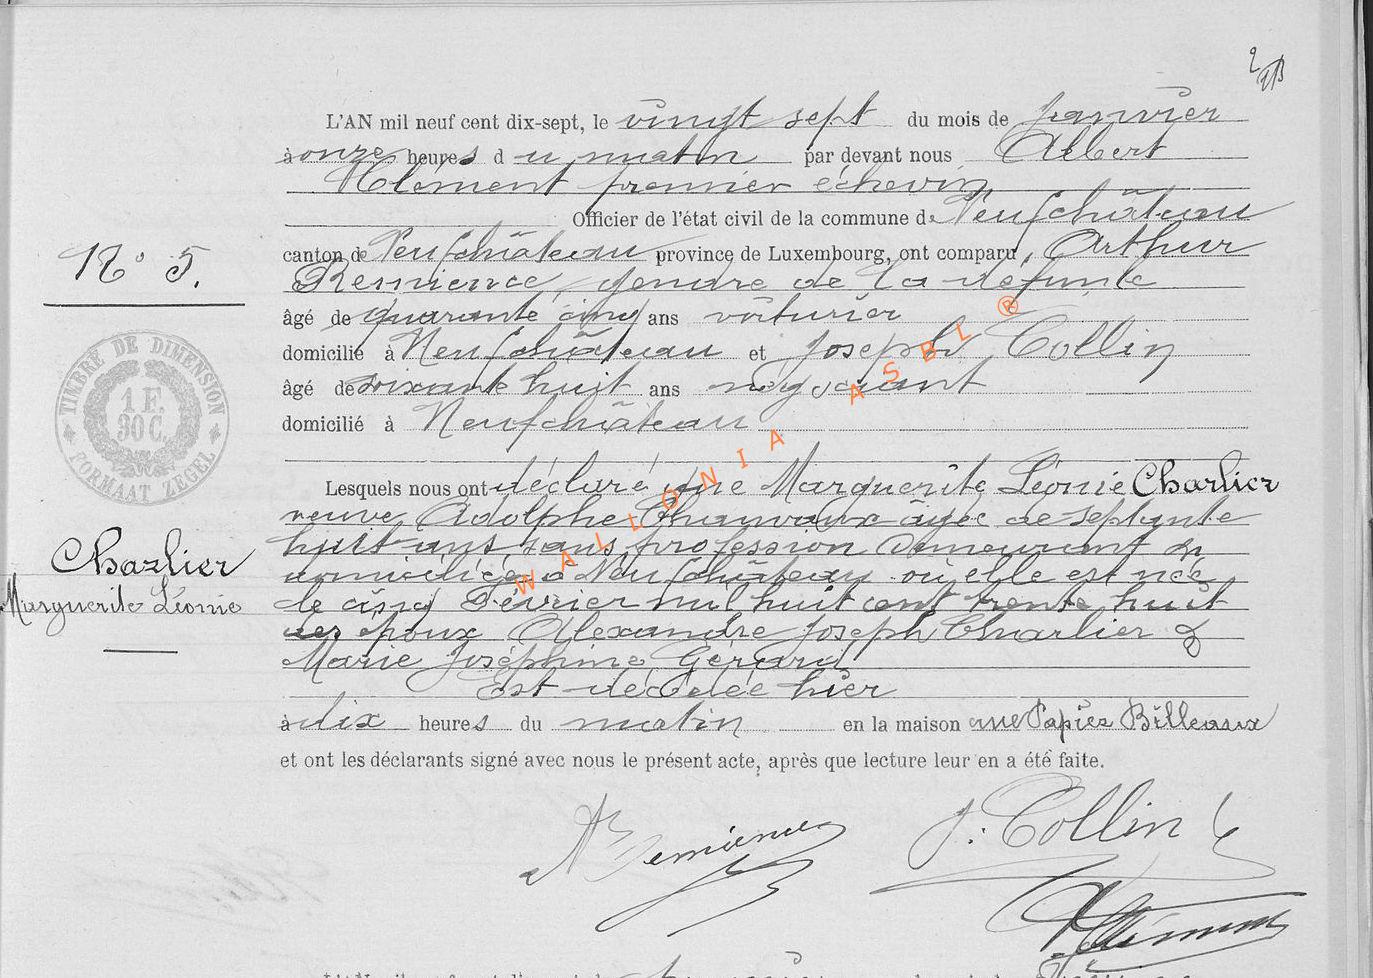 L'AN mil neuf cent dix-sept, le vingt sept du mois de janvier
à onze heures du matin par devant nous Albert
Clément premier échevin
Officier de l'état civil de la commune de Neufchâteau
canton de Neufchâteau province de Luxembourg, ont comparu, Arthur
gendre de la defunte
N° 5.
âgé de quarante cinq ans voiturier
domicilié à Neufchâteau et Joseph Collin
âgé de soixante huit ans négociant
domicilié à Neufchâteau
TIMBRE DE DIMENSION
1 F. 30 C.
FORMAAT ZEGEL
Lesquels nous ont déclaré que Marguerite Léonie Charlier
veuve Adolphe âgée de septante
huit ans, sans profession demeurant &
domiciliée à Neufchâteau où elle est née
Charlier
Marguerite Léonie
le cinq Février mil huit cent trente huit
des époux Alexandre Joseph Charlier &
Marie Joséphine Gérard
Est décédée hier
à dix heures du matin en la maison rue Papier Billeaux
et ont les déclarants signé avec nous le présent acte, après que lecture leur en a été faite.
J. Collin
A Clément
WALLONIA ASBL ®